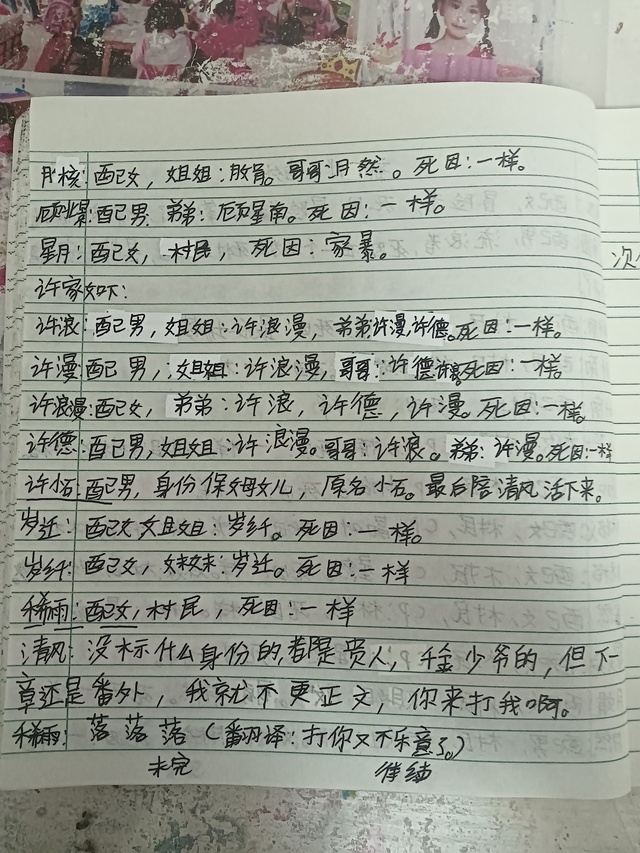 月核:配女,姐姐:散肾。哥哥:月然。死因:一样。
顾爆:配男 弟弟:顾星南。死因:一样。
星月:配女,村民,死因:家暴。
许家如下:
许浪:配男,姐姐:许浪漫,弟弟许漫,许德。死因:一样。
许漫:配男,姐姐:许浪漫,哥哥:许德 死因:一样。
许浪漫:配女,弟弟:许浪,许德,许漫。死因:一样。
许德:配男,姐姐:许浪漫。哥哥:许浪。弟弟:许漫。死因:一样
许小石:配男,身份保姆女儿,原名小石。最后陪清风活下来。
岁迁:配女 姐姐:岁纤。死因:一样。
岁纤:配女,妹妹:岁迁。死因:一样
稀雨:配女,村民,死因:一样
清风:没标什么身份的,都是贵人,千金少爷的,但下一
章还是番外,我就不更正文,你来打我啊。
稀雨:落落落(翻译:打你又不乐意了。)
未完 待续
次